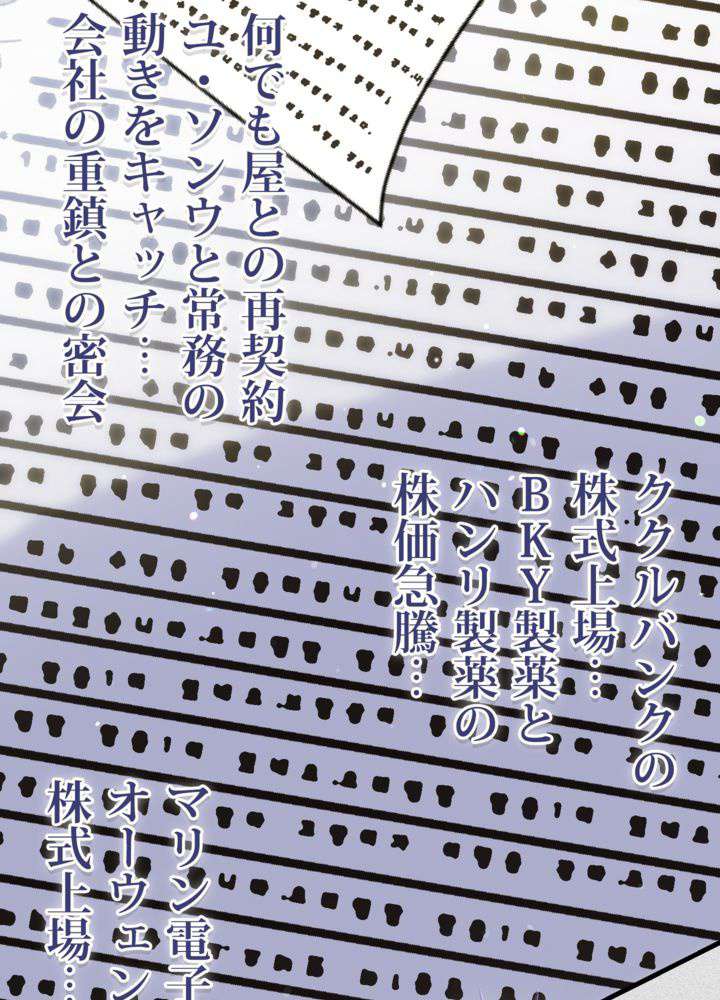 何でも屋との再契約
ユ・ソンウと常務の
動きをキャッチ…
会社の重鎮との密会
ククルバンクの
株式上場…
BKY製薬と
ハンリ製薬の
株価急騰…
マリン電子
オーウェン
株式上場…